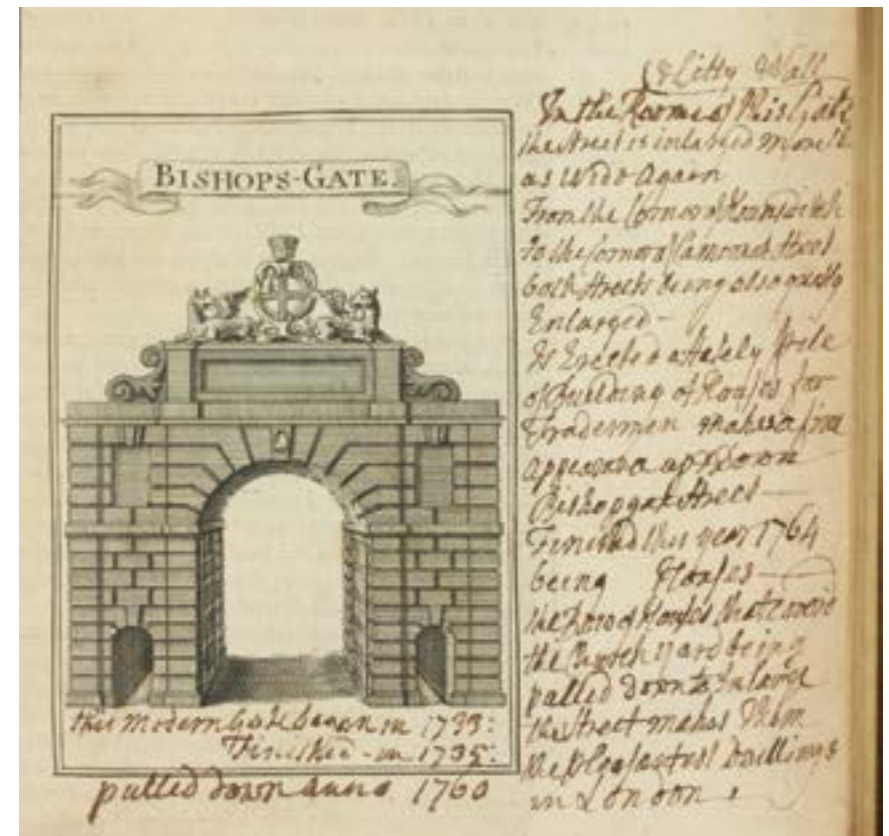 BISHOPS-GATE.
this Modern Gate began in 1733:
Finished - in 1735:
pulled down anno 1760
& Citty Wall
In the Roome of this Gate
the street is inlarged more th
as wide Again
From the Corner of Houndsditch
to the Corner of Camomile street
both streets being also greatly
Enlarged -
Is Erected a stately Pile
of Building of Houses for
Tradesmen makes a fine
appearance up & Down
Bishopgate Street
Finishd this year 1764
being Houses
the Row of Houses that were
the Church yard being
pulled down to Inlarge
the street makes Them
the Pleasantest Dwellings
in London .